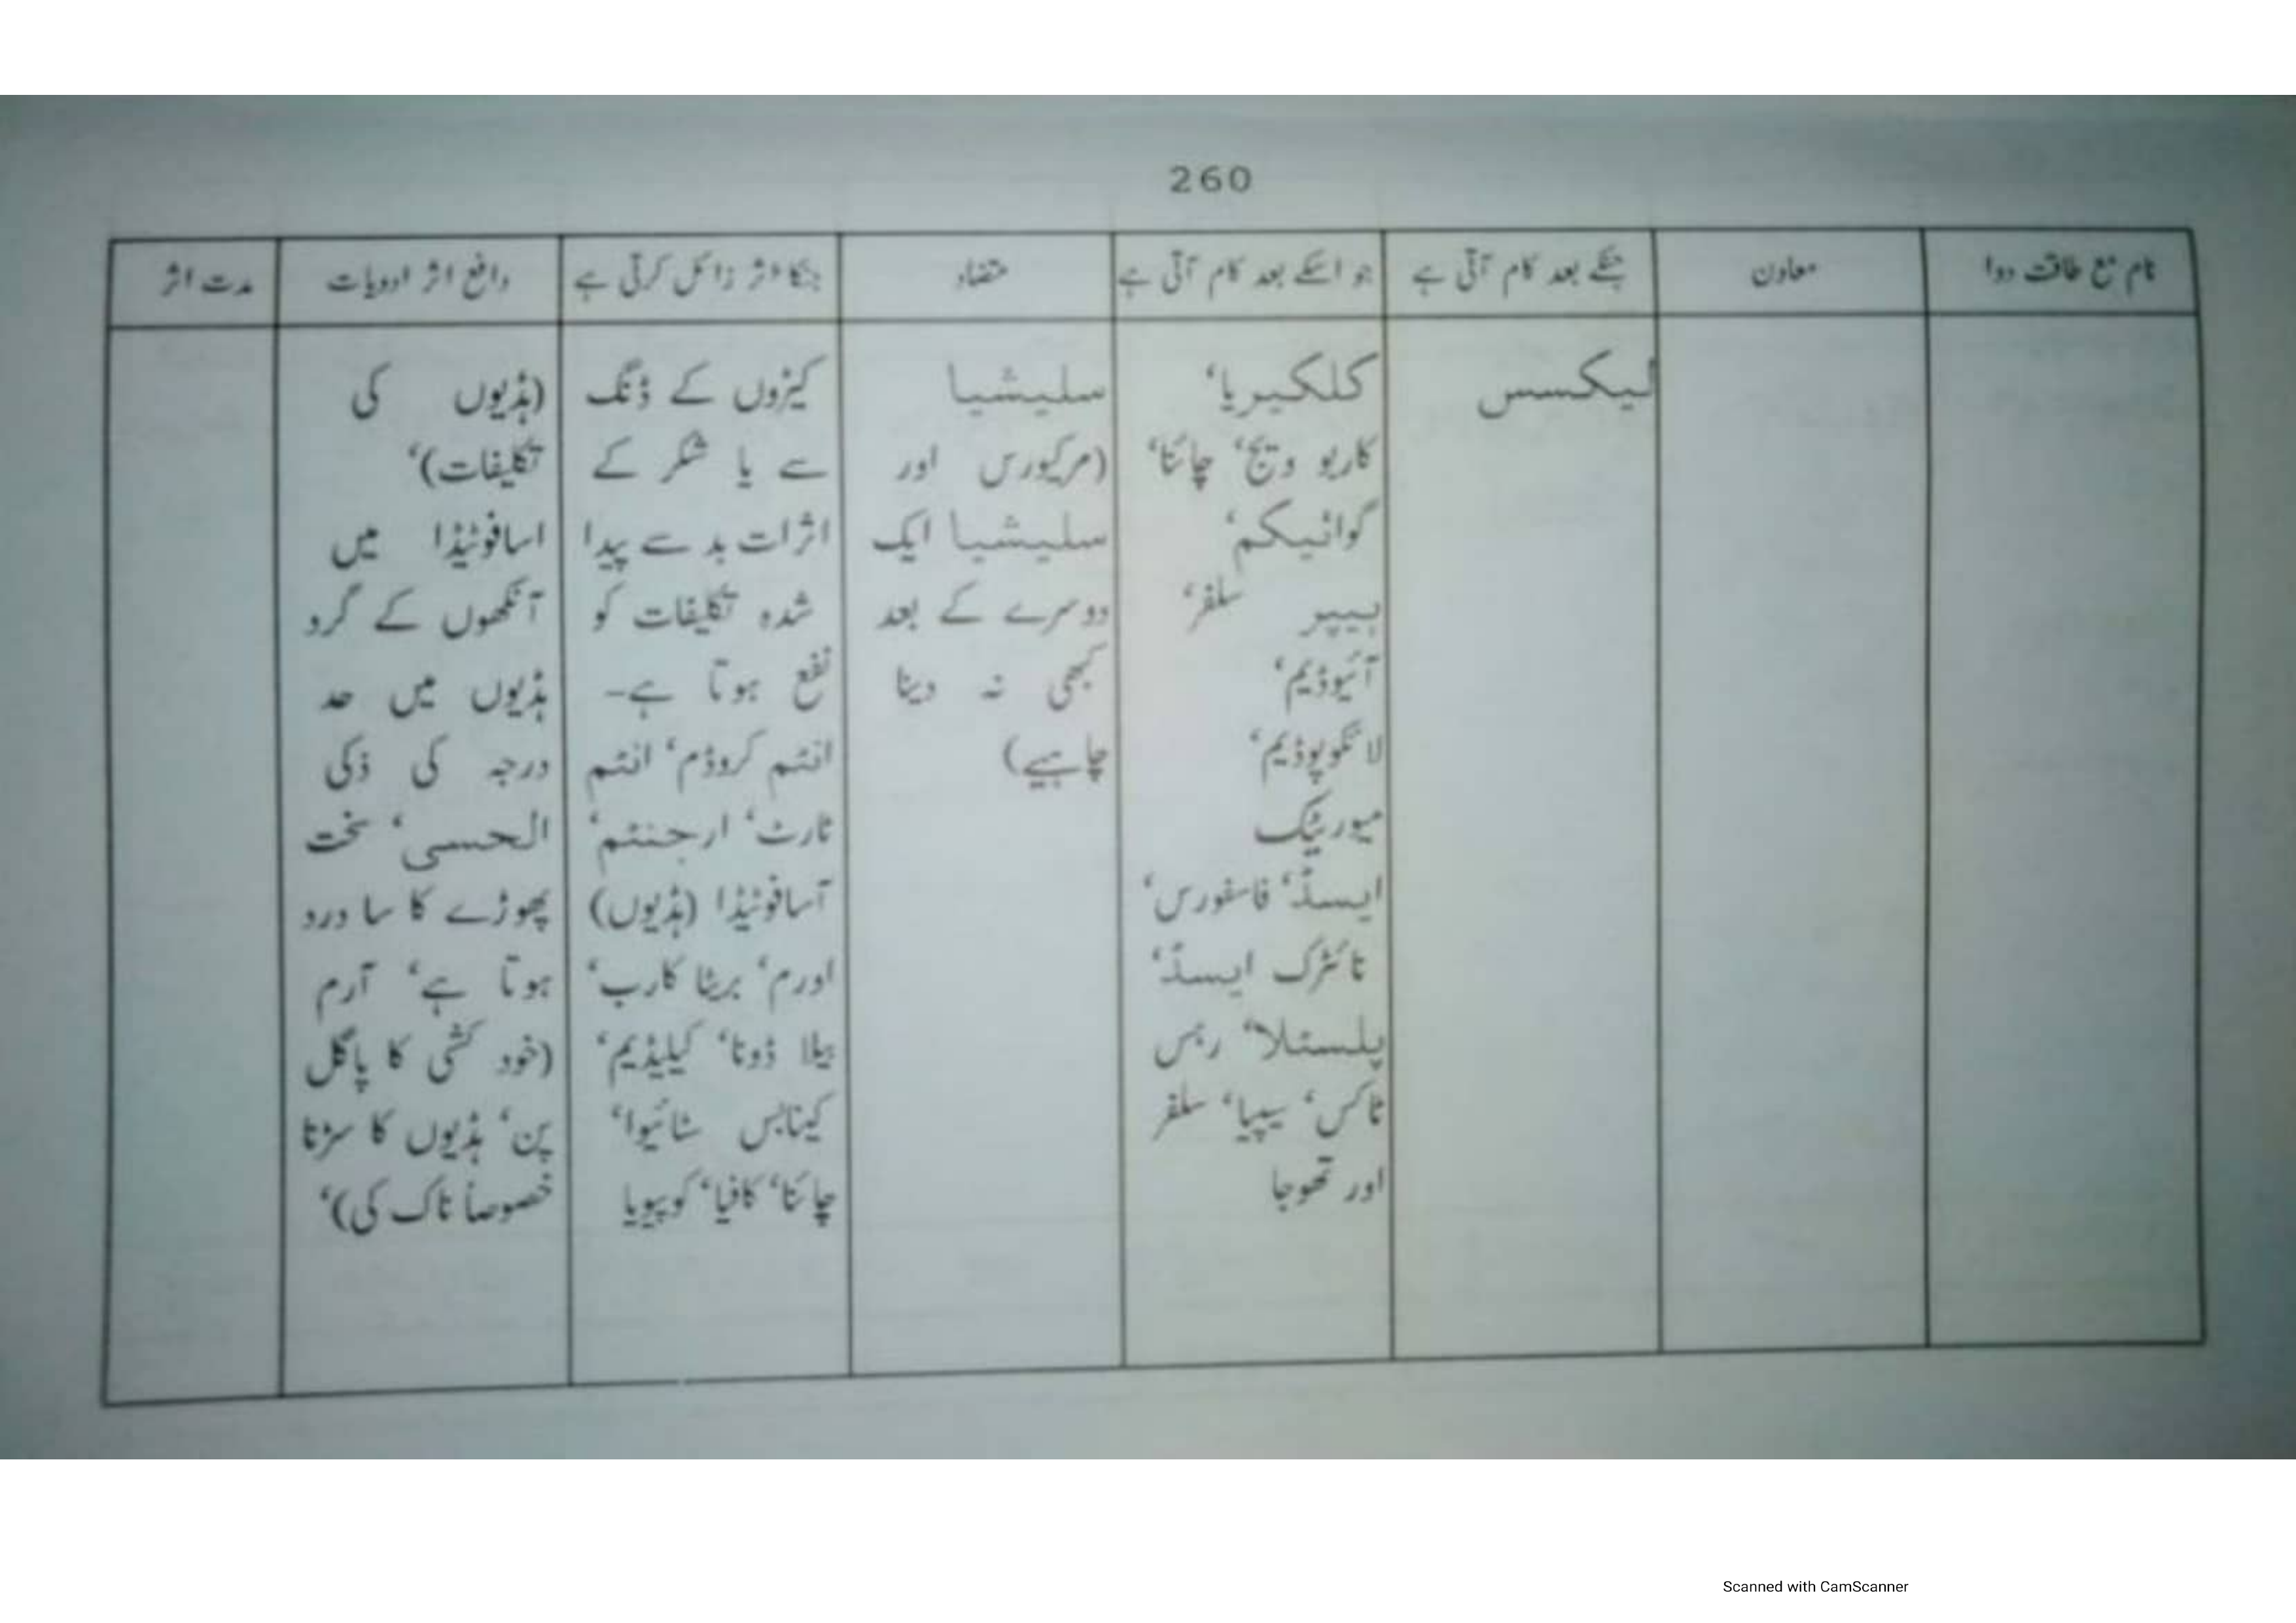 260
نام مع طاقت دوا
معاون
جنکے بعد کام آتی ہے
جو اسکے بعد کام آتی ہے
متضاد
جنکا اثر زائل کرتی ہے
دافع اثر ادویات
مدت اثر
لیکسس
کلکیریا،
کاربو ویج، چائنا،
گوائیکم،
ہیپر سلفر،
آئیوڈیم،
لائکوپوڈیم،
میوریٹک
ایسڈ، فاسفورس،
نائٹرک ایسڈ،
پلسٹلا، رہس
ٹاکس، سیپیا، سلفر
اور تھوجا
سلیشیا
(مرکیورس اور
سلیشیا ایک
دوسرے کے بعد
کبھی نہ دینا
چاہیے)
کیڑوں کے ڈنگ
سے یا شکر کے
اثرات بد سے پیدا
شدہ تکلیفات کو
نفع ہوتا ہے۔
انٹم کروڈم، انٹم
ٹارٹ، ارجنٹم،
آسافوٹیڈا (ہڈیوں)
اورم، بریٹا کارب،
بیلا ڈونا، کیلیڈیم،
کینابس سٹائیوا،
چائنا، کافیا، کوپیویا
(ہڈیوں کی
تکلیفات)،
اسافوٹیڈا میں
آنکھوں کے گرد
ہڈیوں میں حد
درجہ کی ذکی
الحسی، سخت
پھوڑے کا سا درد
ہوتا ہے، آرم
(خود کشی کا پاگل
پن، ہڈیوں کا سڑنا
خصوصاً ناک کی)،
Scanned with CamScanner